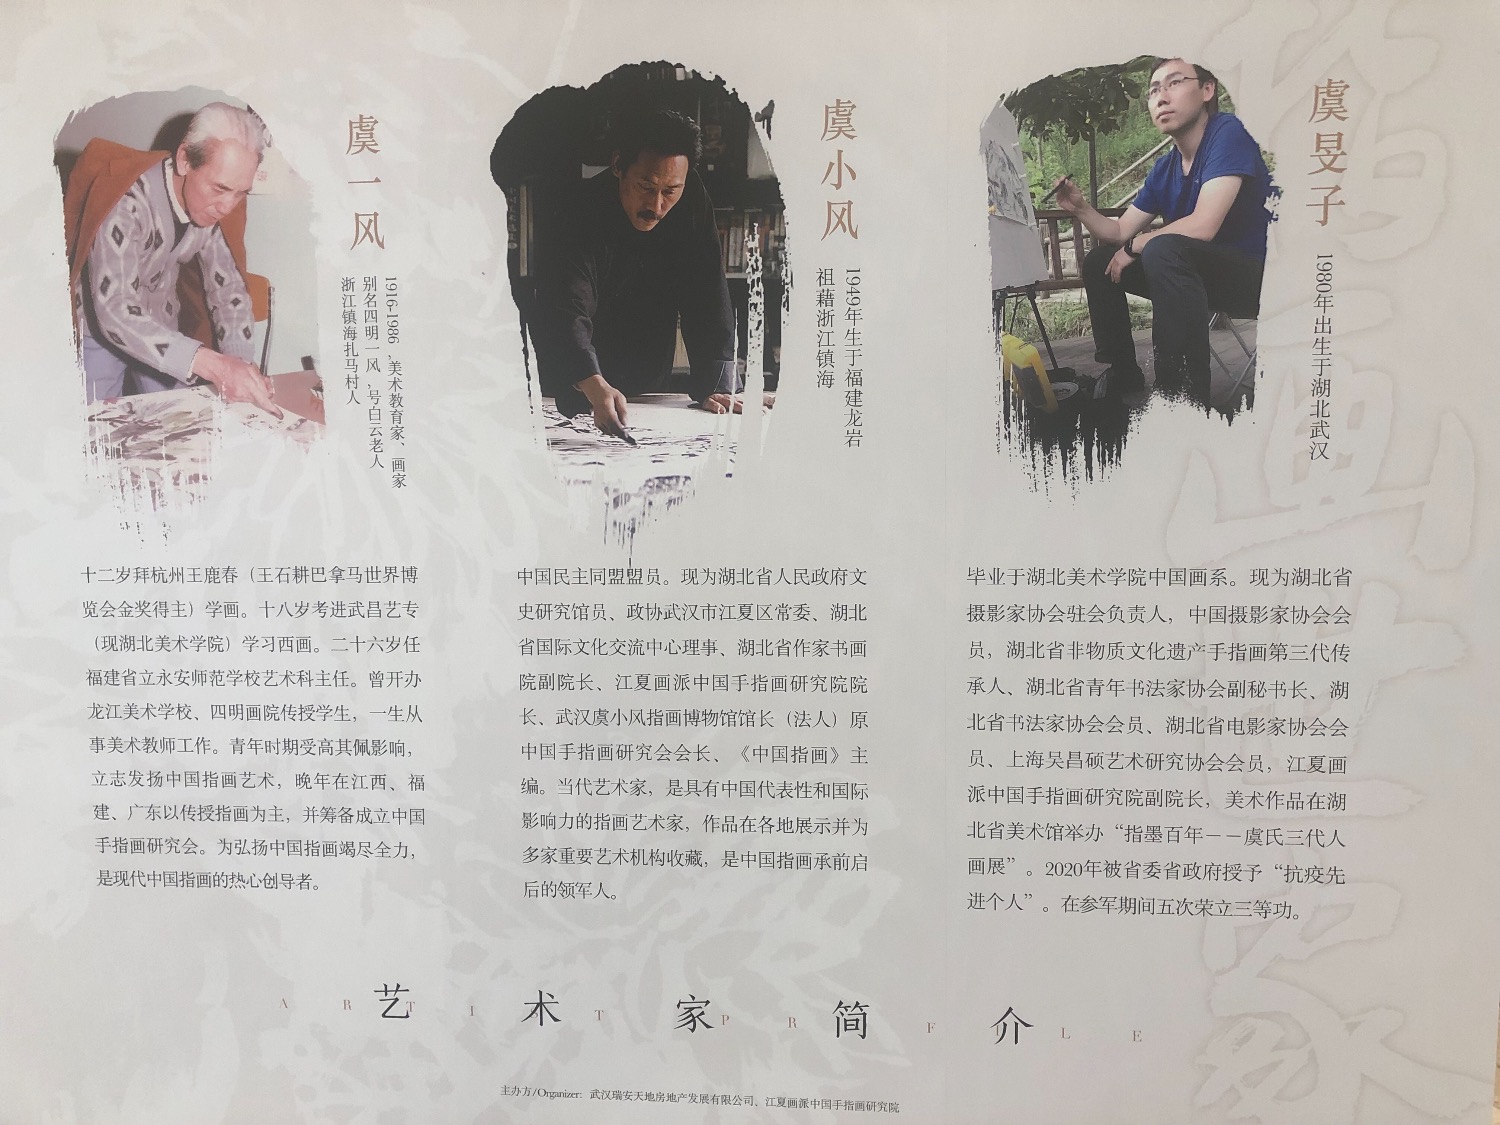 虞一风
1916-1986，美术教育家、画家
别名四明一风，号白云老人
浙江镇海扎马村人
十二岁拜杭州王鹿春（王石耕巴拿马世界博
览会金奖得主）学画。十八岁考进武昌艺专
（现湖北美术学院）学习西画。二十六岁任
福建省立永安师范学校艺术科主任。曾开办
龙江美术学校、四明画院传授学生，一生从
事美术教师工作。青年时期受高其佩影响，
立志发扬中国指画艺术，晚年在江西、福
建、广东以传授指画为主，并筹备成立中国
手指画研究会。为弘扬中国指画竭尽全力，
是现代中国指画的热心创导者。
虞小风
1949年生于福建龙岩
祖藉浙江镇海
中国民主同盟盟员。现为湖北省人民政府文
史研究馆员、政协武汉市江夏区常委、湖北
省国际文化交流中心理事、湖北省作家书画
院副院长、江夏画派中国手指画研究院院
长、武汉虞小风指画博物馆馆长（法人）原
中国手指画研究会会长、《中国指画》主
编。当代艺术家，是具有中国代表性和国际
影响力的指画艺术家，作品在各地展示并为
多家重要艺术机构收藏，是中国指画承前启
后的领军人。
虞旻子
1980年出生于湖北武汉
毕业于湖北美术学院中国画系。现为湖北省
摄影家协会驻会负责人，中国摄影家协会会
员，湖北省非物质文化遗产手指画第三代传
承人、湖北省青年书法家协会副秘书长、湖
北省书法家协会会员、湖北省电影家协会会
员、上海吴昌硕艺术研究协会会员，江夏画
派中国手指画研究院副院长，美术作品在湖
北省美术馆举办“指墨百年——虞氏三代人
画展”。2020年被省委省政府授予“抗疫先
进个人”。在参军期间五次荣立三等功。
艺术家简介
ARTIST PRFILE
主办方/Organizer: 武汉瑞安天地房地产发展有限公司、江夏画派中国手指画研究院